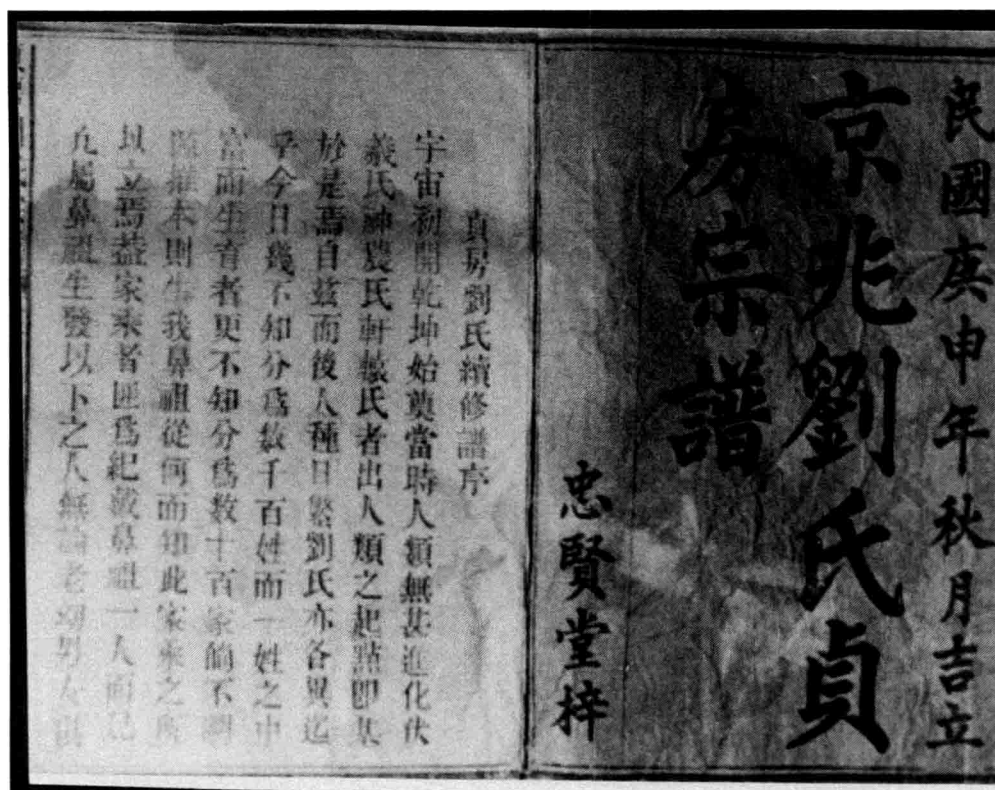 民國庚申年秋月吉立
京兆劉氏貞
房宗譜
忠賢堂梓
貞房劉氏續修譜序
宇宙初開乾坤始奠當時人類無甚進化伏
羲氏神農氏軒轅氏者出人類之起點卽基
於是焉自茲而後人種日繁劉氏亦各異迄
乎今日幾不知分爲數千百姓而一姓之中
當而生育者更不知分爲數十百家的不
推本則生我鼻祖從何而知此家來之所
以立焉葢家來者匪爲紀載鼻祖一人而已
凡屬鼻祖生發以下之人無論老幼男女俱